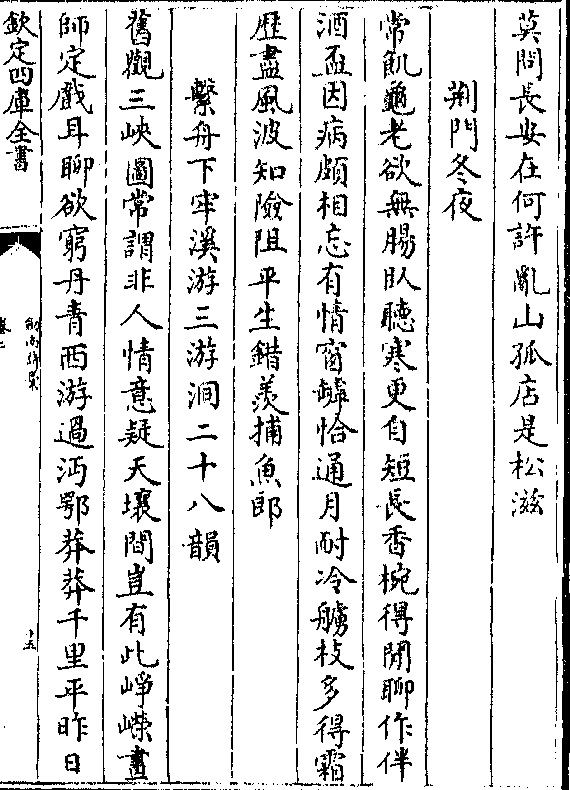 莫問長安在何許亂山孤店是松滋
荆門冬夜
常飢龜老欲無腸臥聽寒更自短長香椀得閒聊作伴
酒盃因病頗相忘有情窗罅恰通月耐冷艣枝多得霜
歴盡風波知險阻平生錯羨捕魚郎
繫舟下牢溪游三游洞二十八韻
舊觀三峽圖常謂非人情意疑天壤間豈有此崢嶸畫
師定戲耳聊欲窮丹青西游過沔鄂莽莽千里平昨日
欽定四庫全書
劍南詩槀
卷二
十五